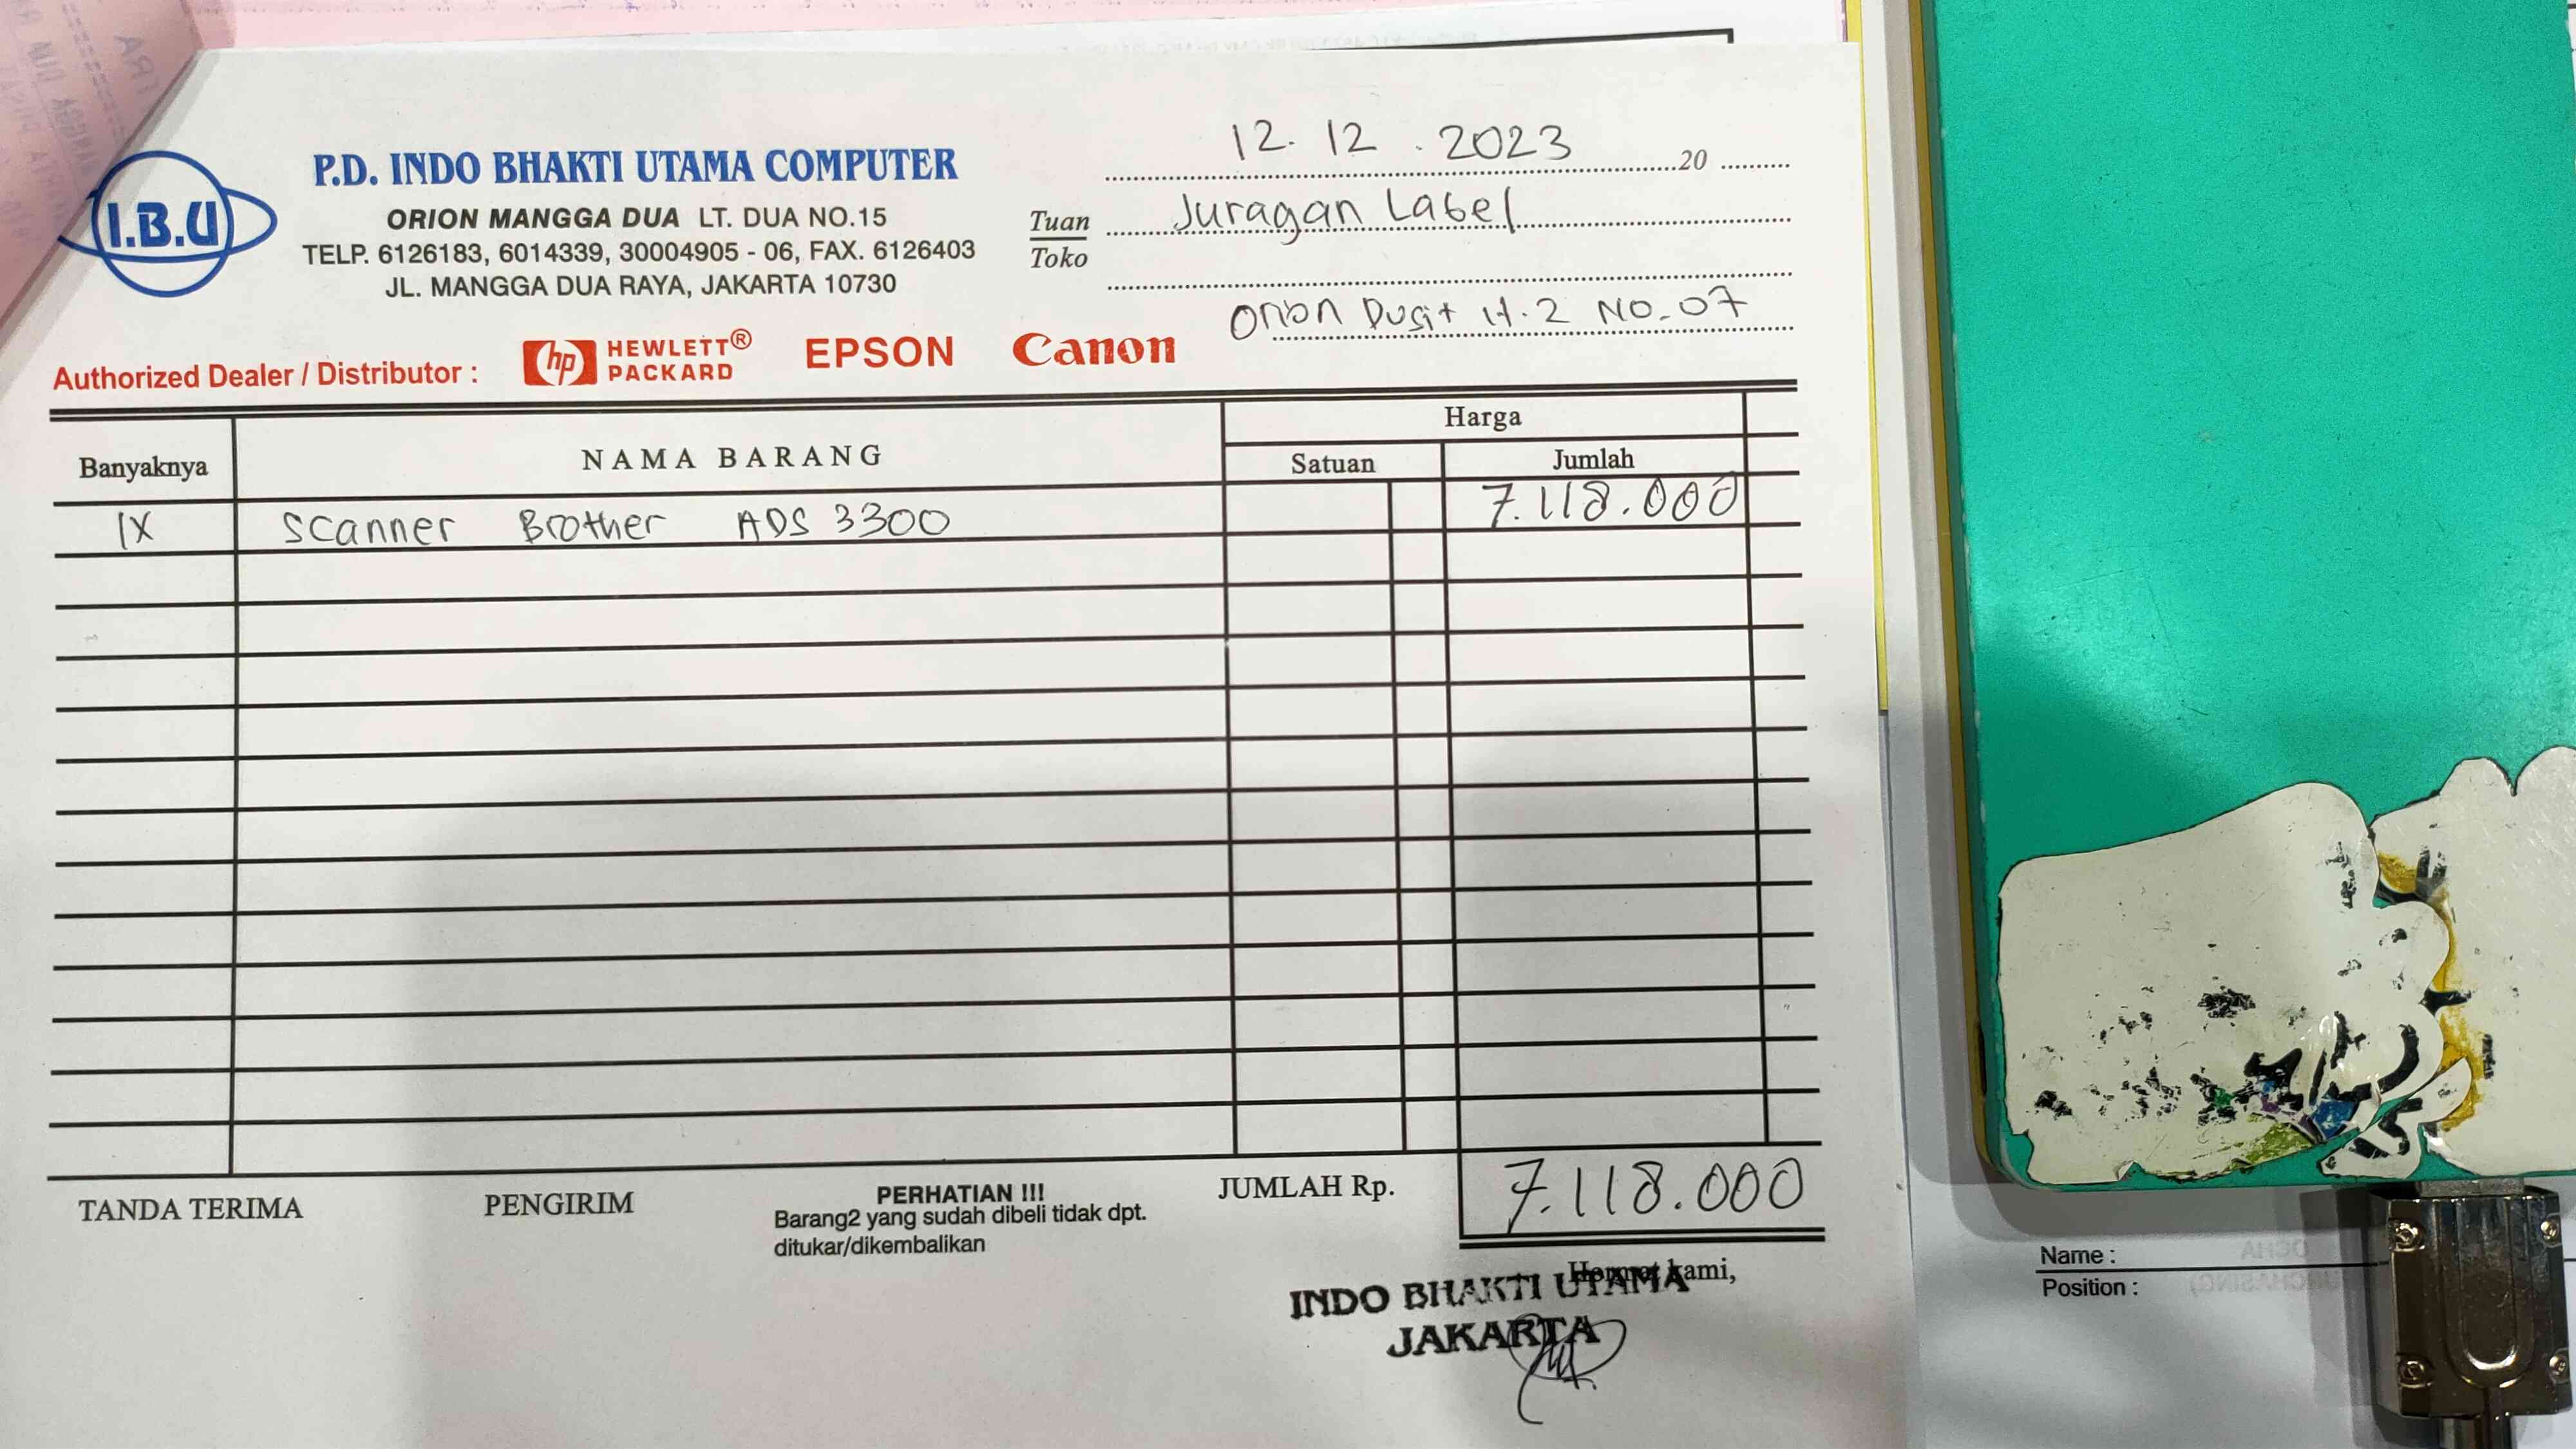 I.B.U
P.D. INDO BHAKTI UTAMA COMPUTER
ORION MANGGA DUA LT. DUA NO.15
TELP. 6126183, 6014339, 30004905 - 06, FAX. 6126403
JL. MANGGA DUA RAYA, JAKARTA 10730
12. 12 . 2023 20
Tuan
Toko
Juragan Label
Orion Dusit lt.2 No.07
Authorized Dealer / Distributor : hp HEWLETT® PACKARD EPSON Canon
Banyaknya NAMA BARANG Harga
Satuan Jumlah
1X Scanner Brother ADS 3300 7.118.000
TANDA TERIMA PENGIRIM PERHATIAN !!! JUMLAH Rp. 7.118.000
Barang2 yang sudah dibeli tidak dpt.
ditukar/dikembalikan
Hormat kami,
INDO BHAKTI UTAMA
JAKARTA
Name :
Position :